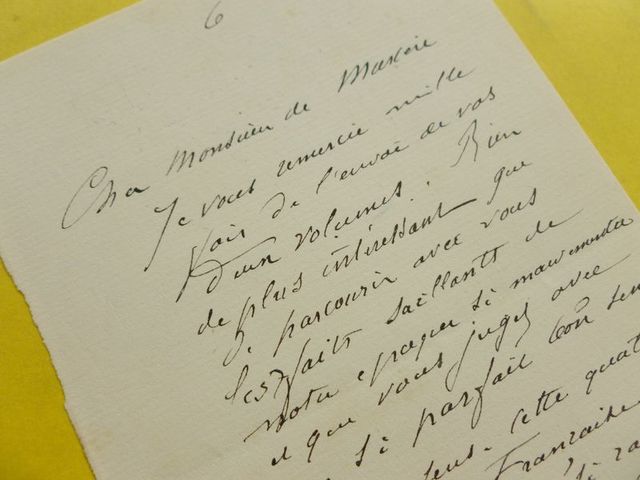 6
Cher Monsieur de
Je vous remercie mille
fois de l'envoi de vos
deux volumes. Rien
de plus intéressant que
de parcourir avec vous
les faits saillants de
notre époque si mouvementée
et que vous jugez avec
si parfait bon sen
sens. Cette quat
Française
si ra